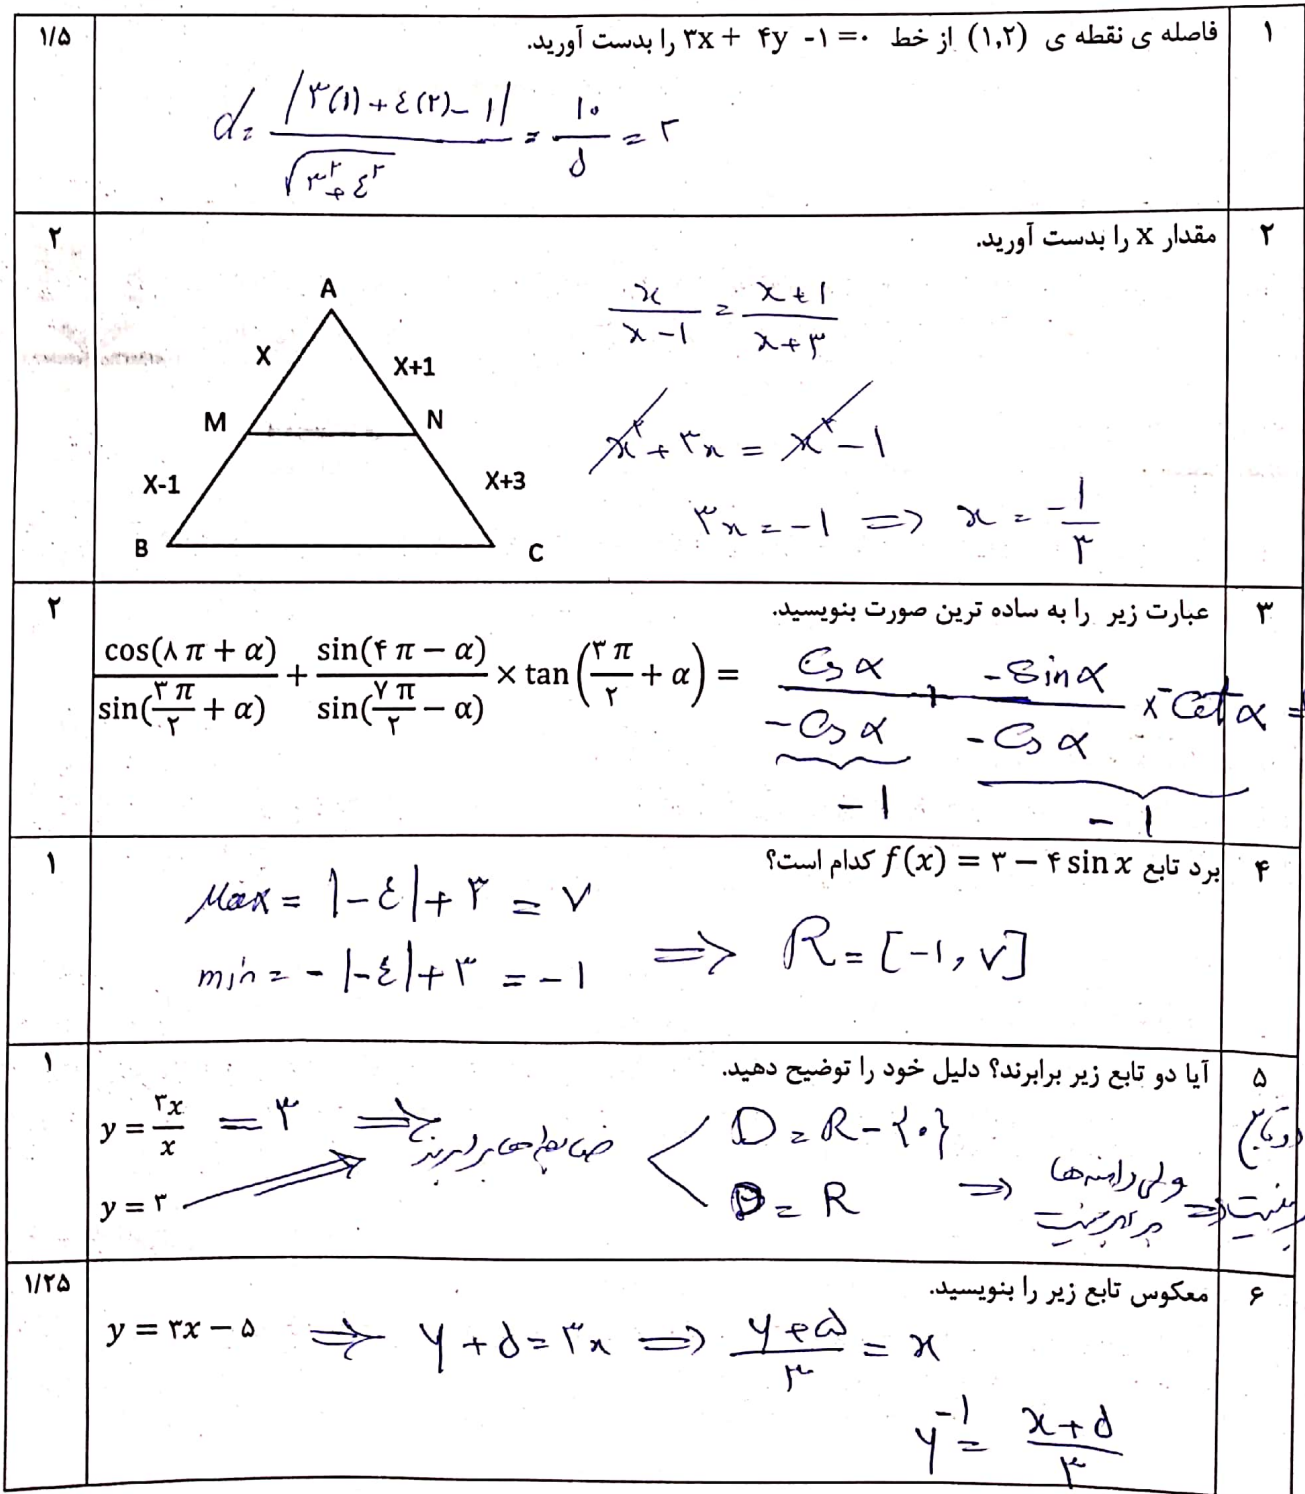 ۱ فاصله ی نقطه ی (۱,۲) از خط ۳x + ۴y -۱ =۰ را بدست آورید. ۱/۵
d = |۳(۱) + ٤(۲) - ۱| / √۳^۲ + ٤^۲ = ۱۰ / ۵ = ۲
۲ مقدار x را بدست آورید. ۲
A
X
X+1
M
N
X-1
X+3
B
C
x / x - ۱ = x + ۱ / x + ۳
x^۲ + ۳x = x^۲ - ۱
۳x = -۱ => x = -۱/۳
۳ عبارت زیر را به ساده ترین صورت بنویسید. ۲
cos(۸π + α) / sin(۳π/۲ + α) + sin(۴π − α) / sin(۷π/۲ − α) × tan(۳π/۲ + α) = Cos α / -Cos α + -Sin α / -Cos α × -Cot α =
-۱
-۱
۴ برد تابع f(x) = ۳ − ۴ sin x کدام است؟ ۱
Max = |-٤| + ۳ = ۷
min = - |-٤| + ۳ = -۱
=> R = [-۱, ۷]
۵ آیا دو تابع زیر برابرند؟ دلیل خود را توضیح دهید. ۱
y = ۳x/x = ۳ => ضابطه ها برابرند D = R - {۰}
y = ۳ D = R => ولی دامنه ها برابر نیست => دو تابع برابر نیست
۶ معکوس تابع زیر را بنویسید. ۱/۲۵
y = ۳x − ۵ => y + ۵ = ۳x => y + ۵ / ۳ = x
y^-۱ = x + ۵ / ۳